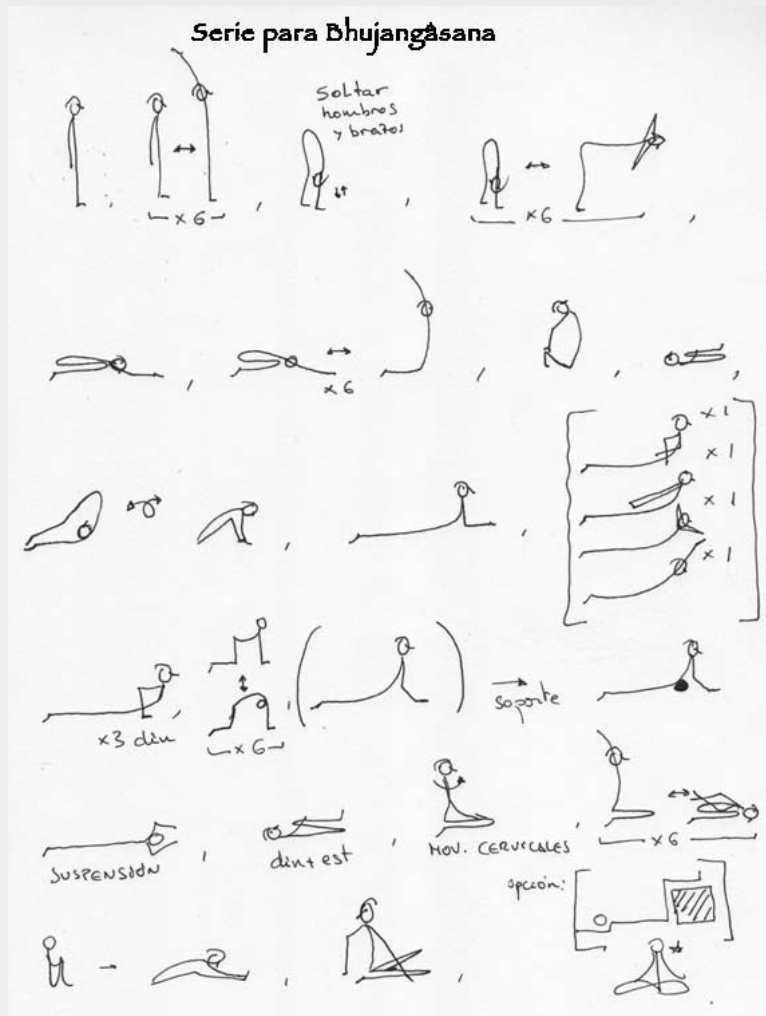 Serie para Bhujangâsana
Soltar
hombros
y brazos
x 6
x 6
x 6
x 1
x 1
x 1
x 1
x3 din
x 6
soporte
SUSPENSIÓN
din+est
MOV. CERVICALES
x 6
opción: